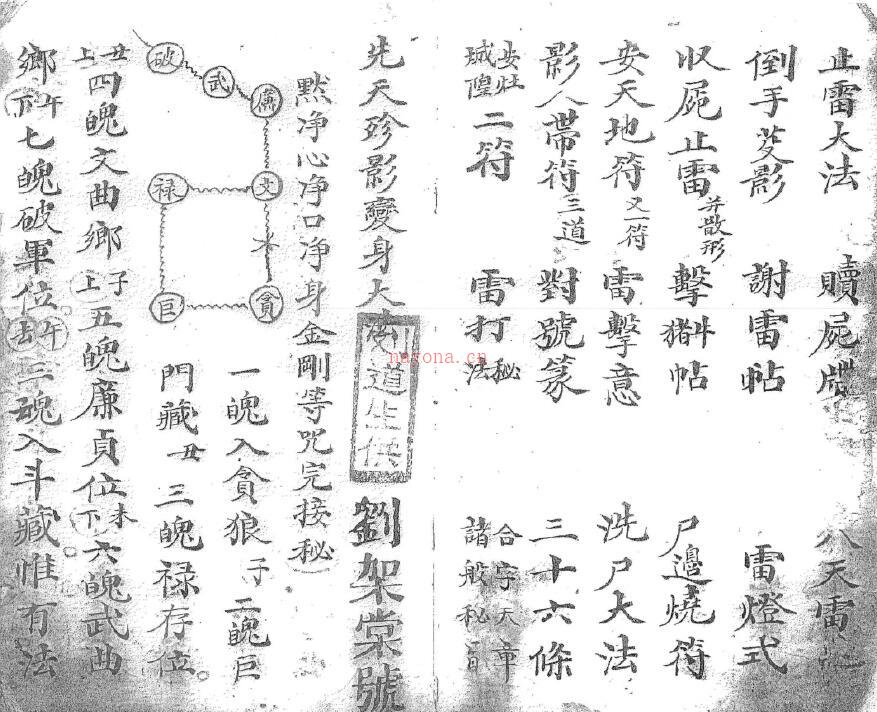 止雷大法 贖屍牒 八天雷
倒手芟影 謝雷帖 雷燈式
收屍止雷并散形 擊猪牛帖 尸邊燒符
安天地符又一符 雷擊意 洗尸大法
影人帶符三道 對號篆 三十六條
安灶城隍二符 雷打秘法 合字天章諸般秘旨
先天殄影變身大法 劉架棠號
劉道生供
默净心净口净身金剛等咒完接秘
破 武 廉 文 禄 巨 貪
一魄入貪狼子二魄巨
門藏丑三魄禄存位。
丑上四魄文曲鄉子上五魄廉貞位未下六魄武曲
鄉午下七魄破軍位。午去三魂入斗藏惟有法
nayona.cn